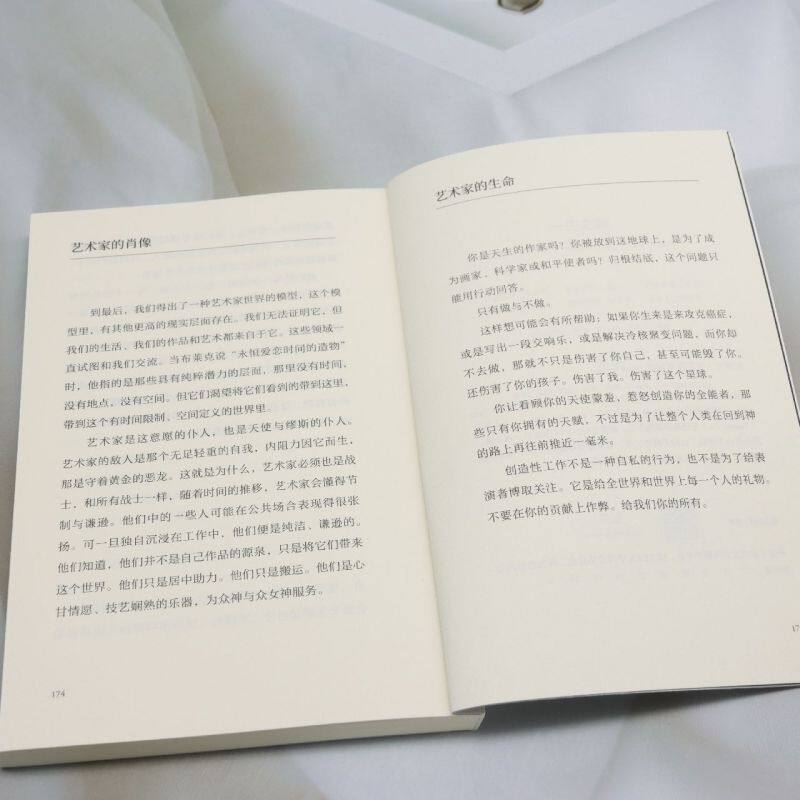 艺术家的肖像
到最后，我们得出了一种艺术家世界的模型，这个模
型里，有其他更高的现实层面存在。我们无法证明它，但
我们的生活、我们的作品和艺术都来自于它。这些领域一
直试图和我们交流。当布莱克说“永恒爱恋时间的造物”
时，他指的是那些具有纯粹潜力的层面，那里没有时间，
没有地点，没有空间。但它们渴望将它们看到的带到这里，
带到这个有时间限制、空间定义的世界里。
艺术家是这意愿的仆人，也是天使与缪斯的仆人。
艺术家的敌人是那个无足轻重的自我，内阻力因它而生，
那是守着黄金的恶龙。这就是为什么，艺术家必须也是战
士，和所有战士一样，随着时间的推移，艺术家会懂得节
制与谦逊。他们中的一些人可能在公共场合表现得很张
扬。可一旦独自沉浸在工作中，他们便是纯洁、谦逊的。
他们知道，他们并不是自己作品的源泉，只是将它们带来
这个世界。他们只是居中助力。他们只是搬运。他们是心
甘情愿、技艺娴熟的乐器，为众神与众女神服务。
174
艺术家的生命
你是天生的作家吗？你被放到这地球上，是为了成
为画家、科学家或和平使者吗？归根结底，这个问题只
能用行动回答。
只有做与不做。
这样想可能会有所帮助：如果你生来是来攻克癌症，
或是写出一段交响乐，或是解决冷核聚变问题，而你却
不去做，那就不只是伤害了你自己，甚至可能毁了你。
还伤害了你的孩子。伤害了我。伤害了这个星球。
你让看顾你的天使蒙羞，惹怒创造你的全能者，那
些只有你拥有的天赋，不过是为了让整个人类在回到神
的路上再往前推近一毫米。
创造性工作不是一种自私的行为，也不是为了给表
演者博取关注。它是给全世界和世界上每一个人的礼物。
不要在你的贡献上作弊。给我们你的所有。